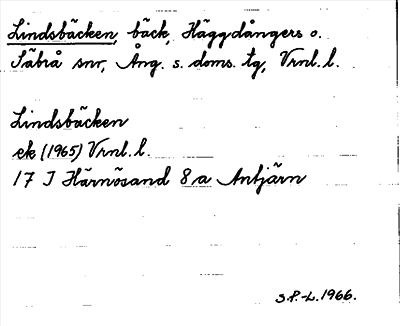 Lindsbäcken, bäck, Häggdångers o.
Säbrå snr, Ång. s. doms. tg, Vrnl. l.
Lindsbäcken
ek (1965) Vrnl. l.
17 I Härnösand 8 a Antjärn
S.P.-L. 1966.